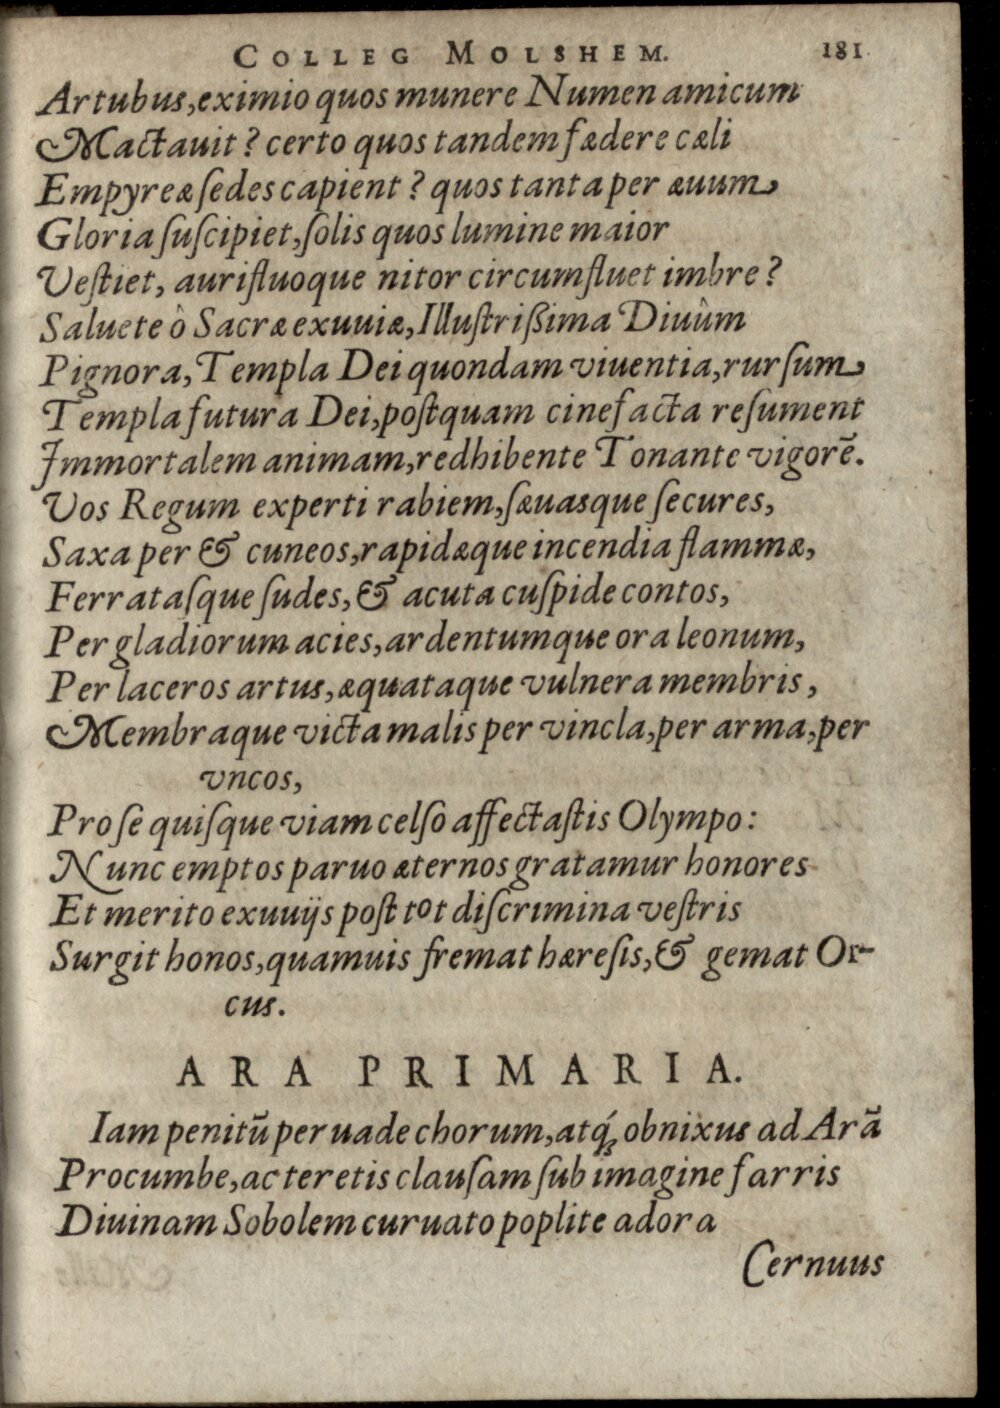 COLLEG MOLSHEM. 181.
Artubus, eximio quos munere Numen amicum
Mactauit? certo quos tandem fædere cæli
Empyreæ ſedes capient? quos tanta per æuum
Gloria ſuſcipiet, ſolis quos lumine maior
Veſtiet, aurifluoque nitor circumfluet imbre?
Saluete ò Sacræ exuuiæ, Illuſtriſsima Diuùm
Pignora, Templa Dei quondam viuentia, rurſum
Templa futura Dei, poſtquam cinefacta reſument
Immortalem animam, redhibente Tonante vigorē.
Vos Regum experti rabiem, ſæuasque ſecures,
Saxa per & cuneos, rapidæque incendia flammæ,
Ferrataſque ſudes, & acuta cuſpide contos,
Per gladiorum acies, ardentumque ora leonum,
Per laceros artus, æquataque vulnera membris,
Membraque victa malis per vincla, per arma, per
vncos,
Pro ſe quiſque viam celſo affectaſtis Olympo:
Nunc emptos paruo æternos gratamur honores
Et merito exuuijs poſt tot diſcrimina veſtris
Surgit honos, quamuis fremat hæreſis, & gemat Or-
cus.
ARA PRIMARIA.
Iam penitū peruade chorum, atq́; obnixus ad Arā
Procumbe, ac teretis clauſam ſub imagine farris
Diuinam Sobolem curuato poplite adora
Cernuus